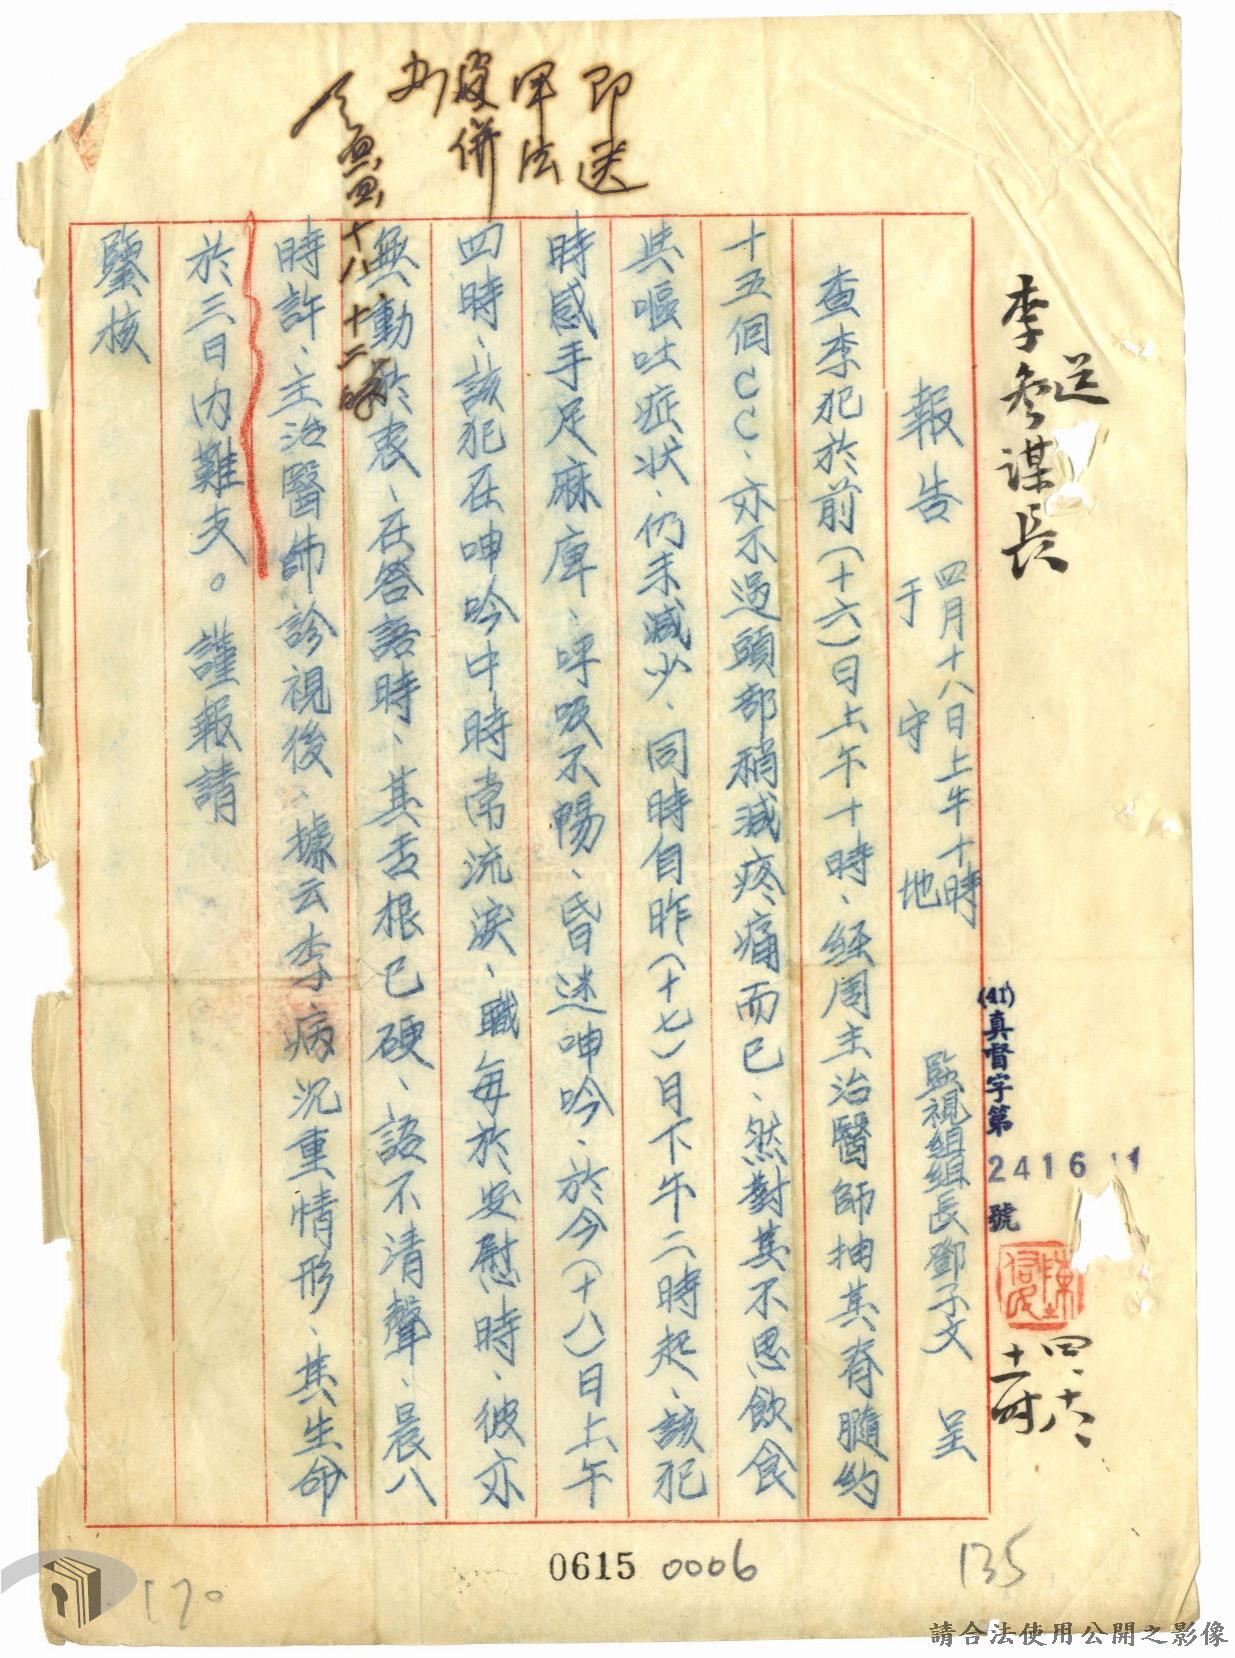 即送
軍法
併
送
李參謀長
報告 四月十八日上午十時
于守地
監視組組長鄧子文 呈
(41)真督字第
2416
號
四、十八、
十一时
查李犯於前（十六）日上午十時、經周主治醫師抽其脊髓約
十五個CC、亦不過頭部稍減疼痛而已、然對其不思飲食
與嘔吐症狀、仍未減少、同時自昨（十七）日下午二時起、該犯
時感手足麻庳、呼吸不暢、昏迷呻吟、於今（十八）日上午
四時、該犯在呻吟中時常流淚、職每於安慰時、彼亦
無動於衷、在答語時、其舌根已硬、語不清聲、晨八
時許、主治醫師診視後、據云李病沉重情形、其生命
於三日內難支。謹報請
鑒核
十八、十二時
0615 0006
135
170
請合法使用公開之影像